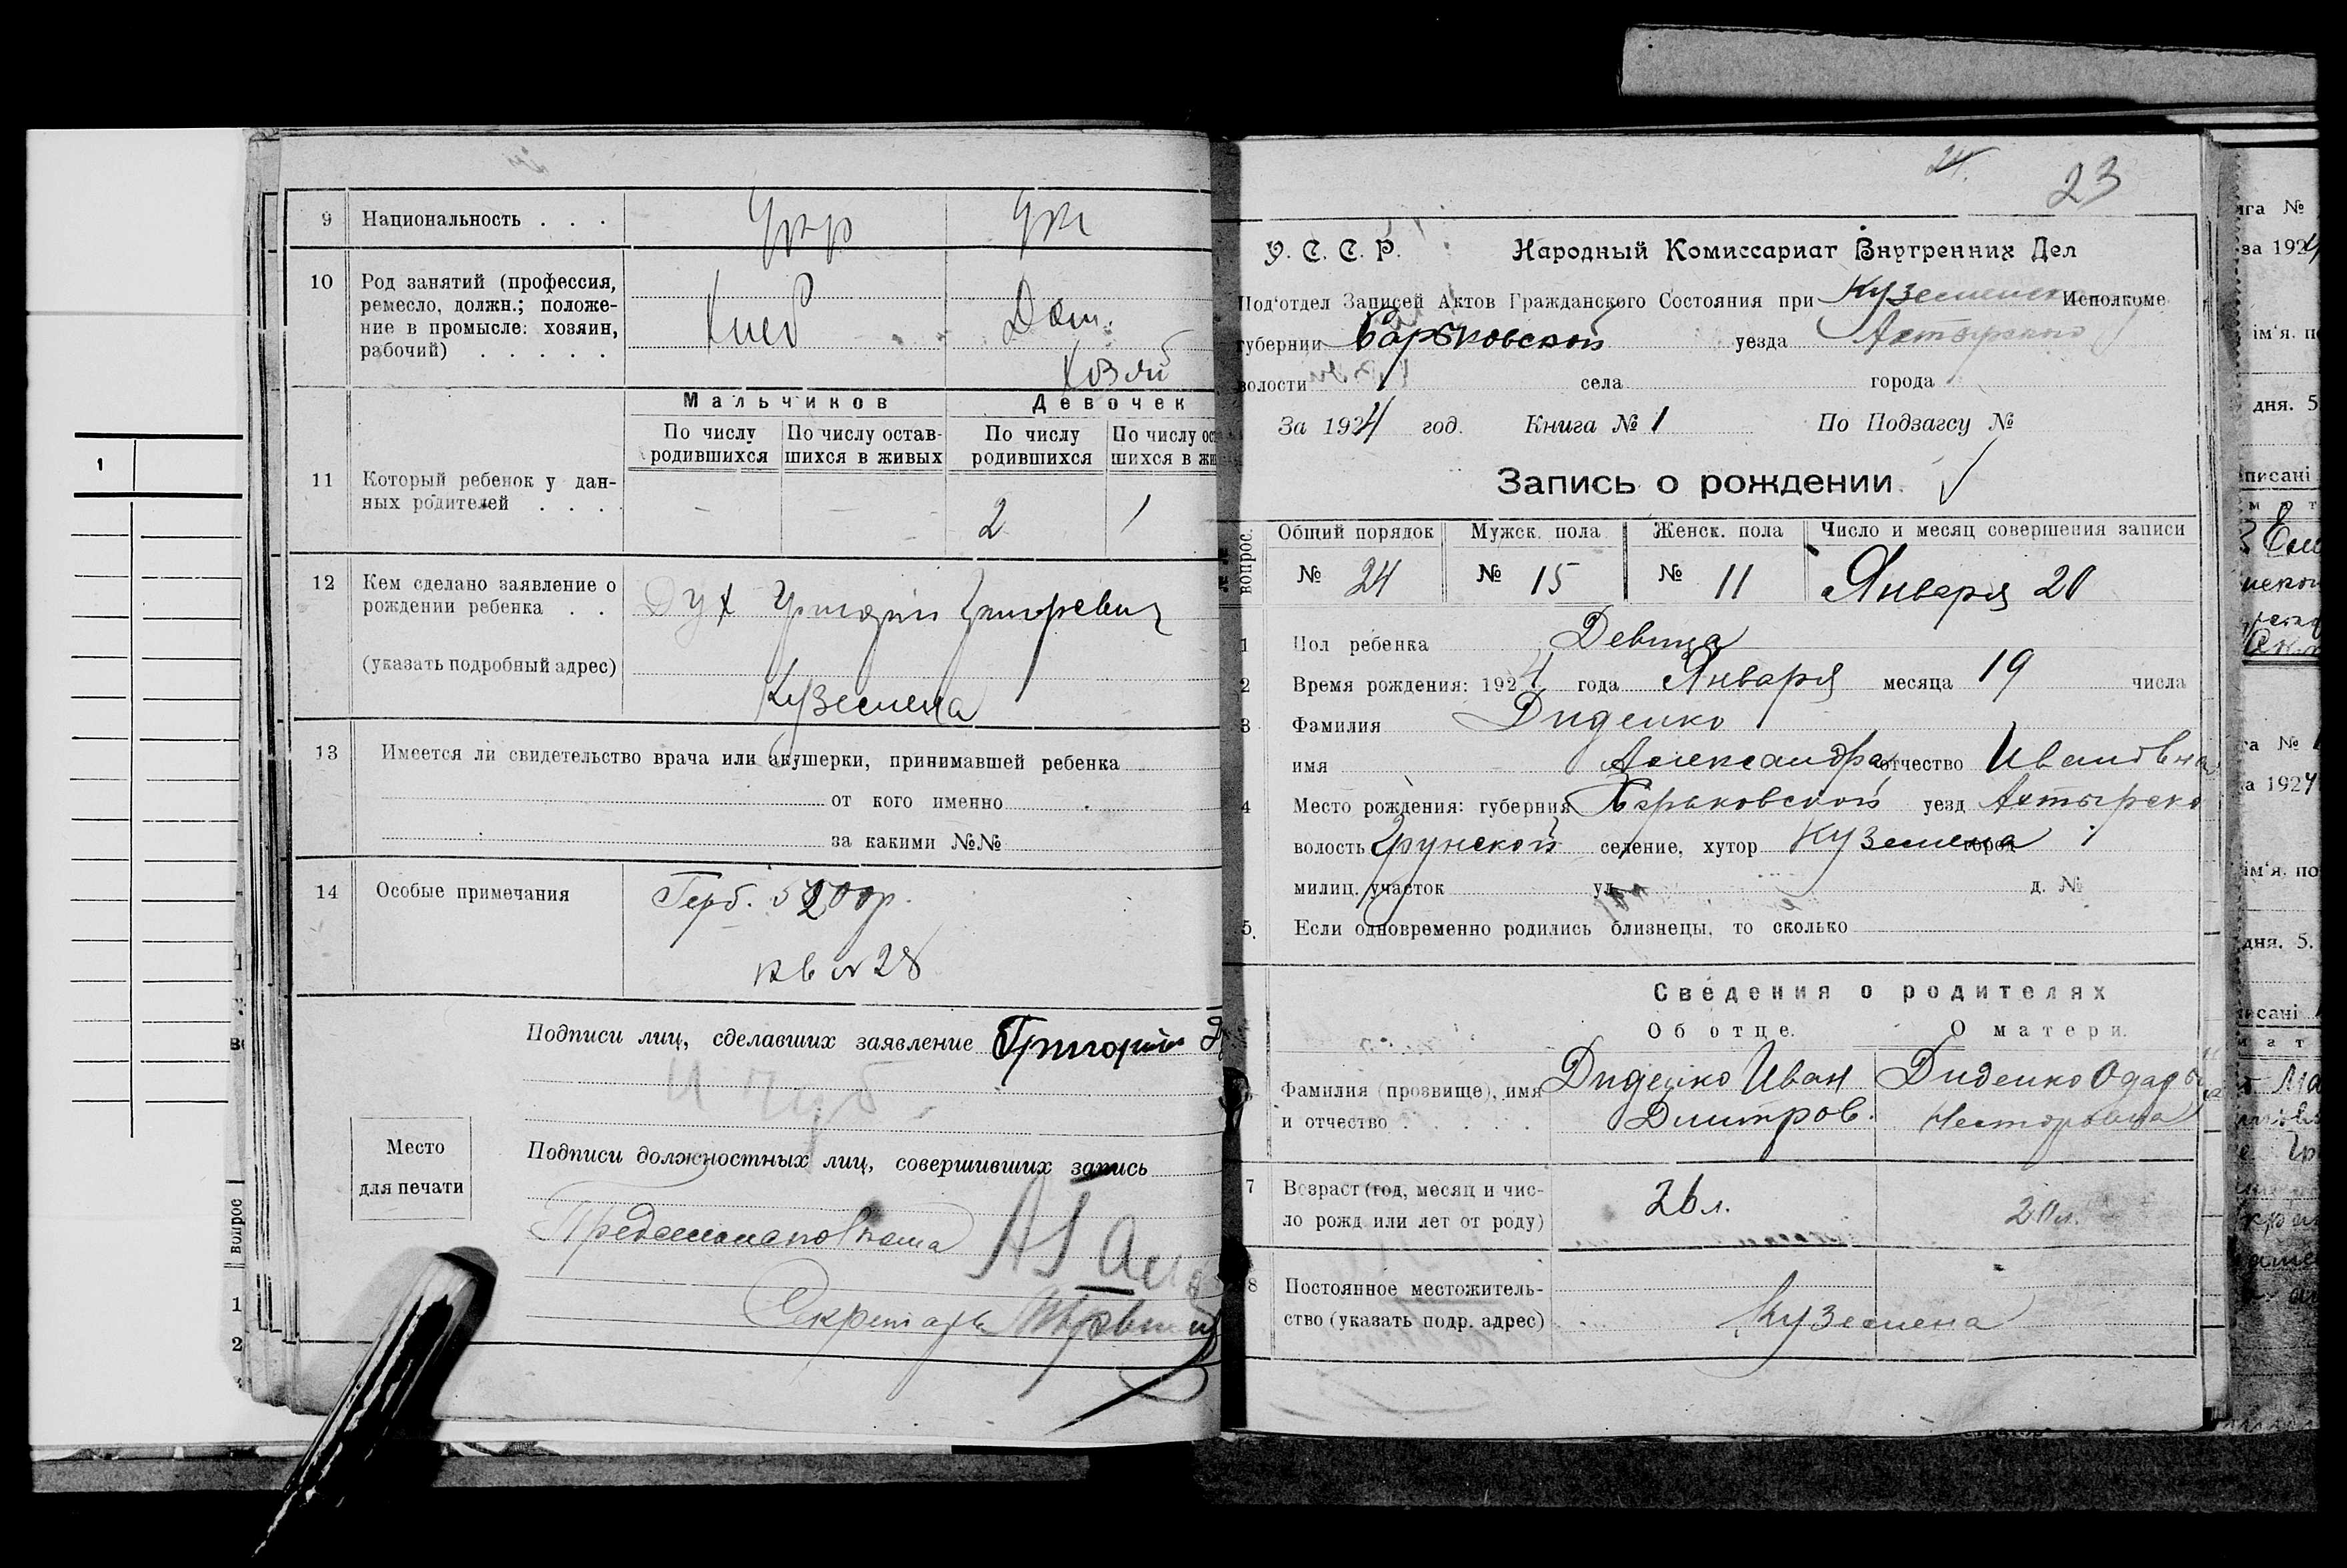 9 Национальность . . . Укр Укр
10 Род занятий (профессия,
ремесло, должн.; положе-
ние в промысле: хозяин,
рабочий) . . . . .
Хлеб Дом.
Хозяй
Мальчиков Девочек
По числу родившихся По числу остав-шихся в живых По числу родившихся
11 Который ребенок у дан-
ных родителей . . . .
- - 2 1
12 Кем сделано заявление о
рождении ребенка . .
Дух Григорий Григоревич
(указать подробный адрес)
Куземена
13 Имеется ли свидетельство врача или акушерки, принимавшей ребенка
от кого именно
за какими №№
14 Особые примечания
Герб.
кв № 28
Подписи лиц, сделавших заявление Григорий
Место
для печати
Подписи должностных лиц, совершивших запись
Секретарь
24.
23
У. С. С. Р. Народный Комиссариат Внутренних Дел
Под'отдел Записей Актов Гражданского Состояния при Исполкоме
губернии Харьковской уезда Ахтырского
волости села города
За 1924 год. Книга № 1 По Подзагсу №
Запись о рождении
№№ вопрос.
Общий порядок Мужск. пола Женск. пола Число и месяц совершения записи
№ 24 № 15 № 11 Января 20
1 Пол ребенка Девица
2 Время рождения: 1924 года Января месяца 19 числа
3 Фамилия Диденко
имя Александра отчество Ивановна
4 Место рождения: губерния Харьковской уезд Ахтырско
волость Грунской селение, хутор Куземена город
милиц. участок ул. д. №
5. Если одновременно родились близнецы, то сколько
Сведения о родителях
Об отце. О матери.
Фамилия (прозвище), имя
и отчество . . . . .
Диденко Иван
Дмитров.
Диденко
Несторовна
7 Возраст (год, месяц и чис-
ло рожд или лет от роду)
26 л. 20 л.
8 Постоянное местожитель-
ство (указать подр. адрес)
Куземена